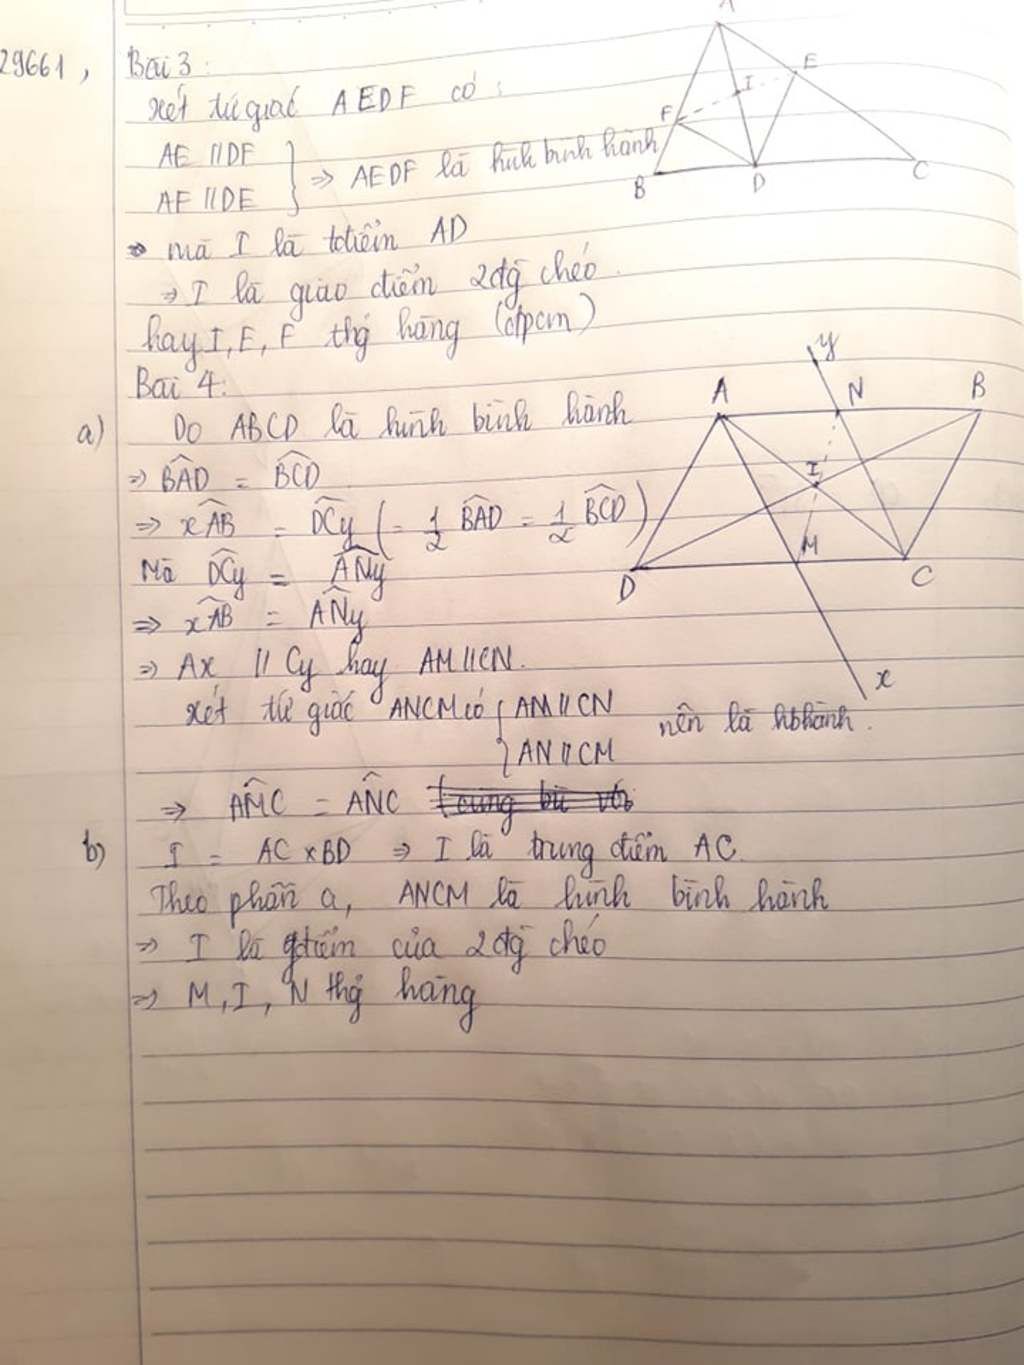 29661,
Bài 3:
Xét tứ giác AEDF có:
AE // DF
AF // DE
⇒ AEDF là hình bình hành
mà I là tđiểm AD
⇒ I là giao điểm 2 đg chéo
hay I, E, F thg hàng (đpcm)
A
E
I
F
B
D
C
Bài 4:
a) Do ABCD là hình bình hành
⇒ BAD^ = BCD^
⇒ xAB^ = DCy^ (= 1/2 BAD^ = 1/2 BCD^)
Mà DCy^ = ANy^
⇒ xAB^ = ANy^
⇒ Ax // Cy hay AM // CN.
Xét tứ giác ANCM có { AM // CN
AN // CM
nên là hbhành.
⇒ AMC^ = ANC^
b) I = AC × BD ⇒ I là trung điểm AC.
Theo phần a, ANCM là hình bình hành
⇒ I là gđiểm của 2 đg chéo
⇒ M, I, N thg hàng
y
A
N
B
I
M
D
C
x